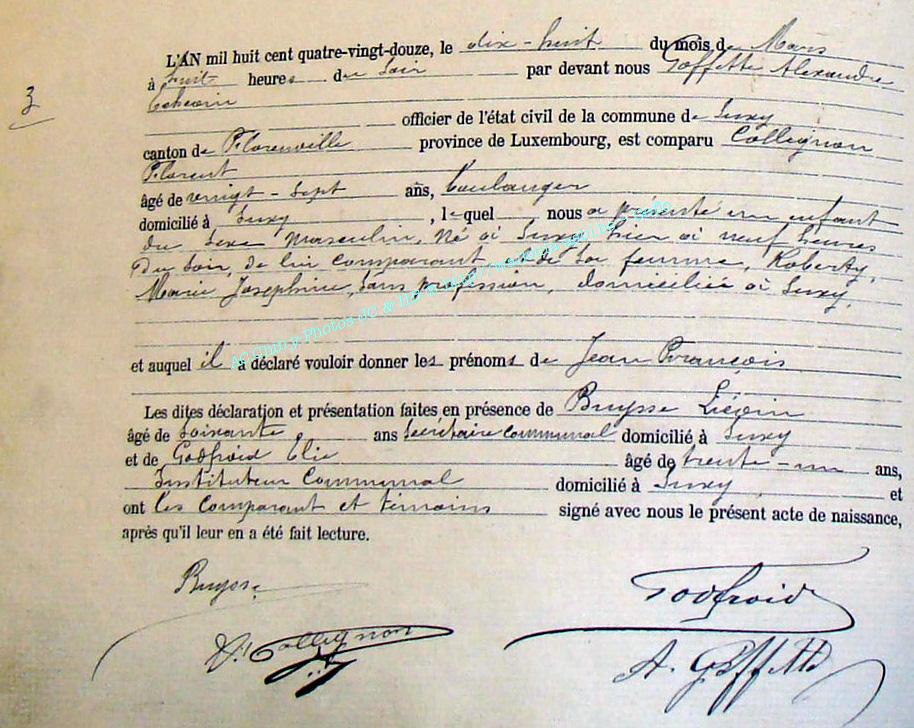 3
L'AN mil huit cent quatre-vingt-douze, le dix-huit du mois de Mars
à huit heures du soir par devant nous Goffette Alexandre
Echevin
officier de l'état civil de la commune de Suxy
canton de Florenville province de Luxembourg, est comparu Collignon
Florent
âgé de vingt-sept ans, boulanger
domicilié à Suxy, lequel nous a présenté un enfant
du sexe masculin, né à Suxy hier à neuf heures
du soir, de lui comparant et de sa femme, Roberty,
Marie Josephine, sans profession, domiciliée à Suxy,
et auquel il a déclaré vouloir donner les prénoms de Jean François
Les dites déclaration et présentation faites en présence de Buysse Liévin
âgé de soixante ans Secrétaire communal domicilié à Suxy
et de Godfroid Elie âgé de trente-un ans,
Instituteur Communal domicilié à Suxy et
ont les comparant et témoins signé avec nous le présent acte de naissance,
après qu'il leur en a été fait lecture.
Buysse Godfroid
Collignon A. Goffette